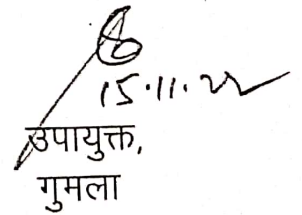 15.11.22
उपायुक्त,
गुमला